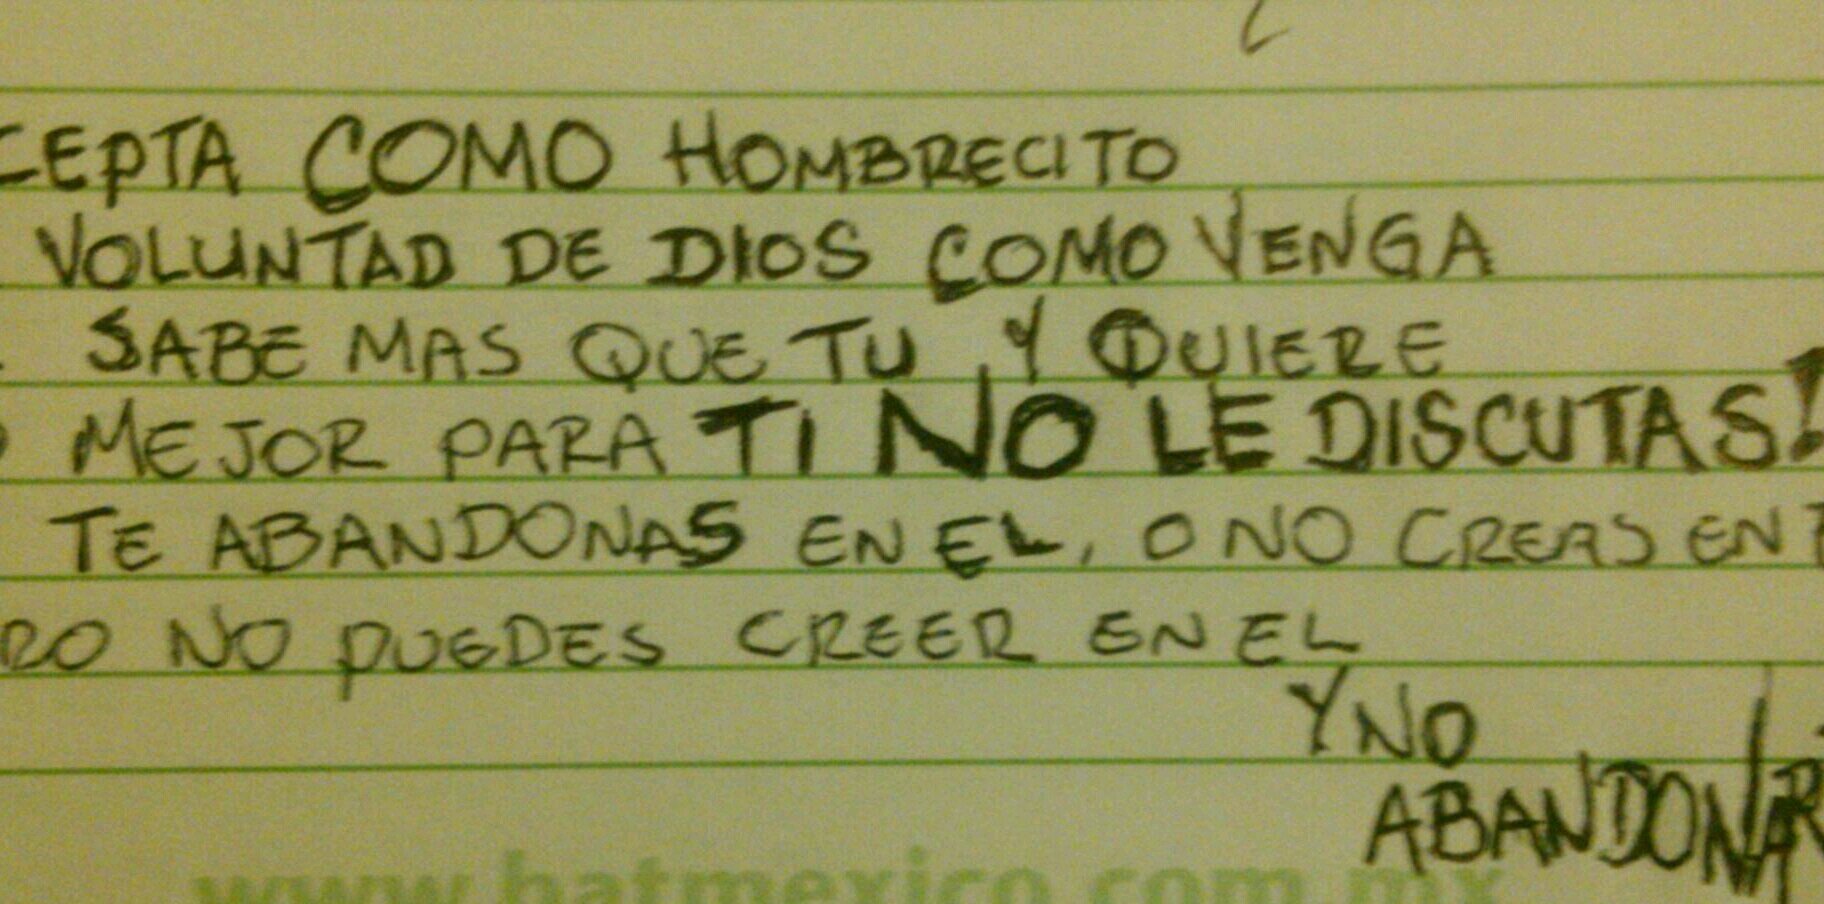 CEPTA COMO HOMBRECITO
VOLUNTAD DE DIOS COMO VENGA
SABE MAS QUE TU Y QUIERE
O MEJOR PARA TI NO LE DISCUTAS!
TE ABANDONAS EN EL, O NO CREAS EN E
RO NO PUEDES CREER EN EL
Y NO
ABANDONAR
www.batmexico.com.mx